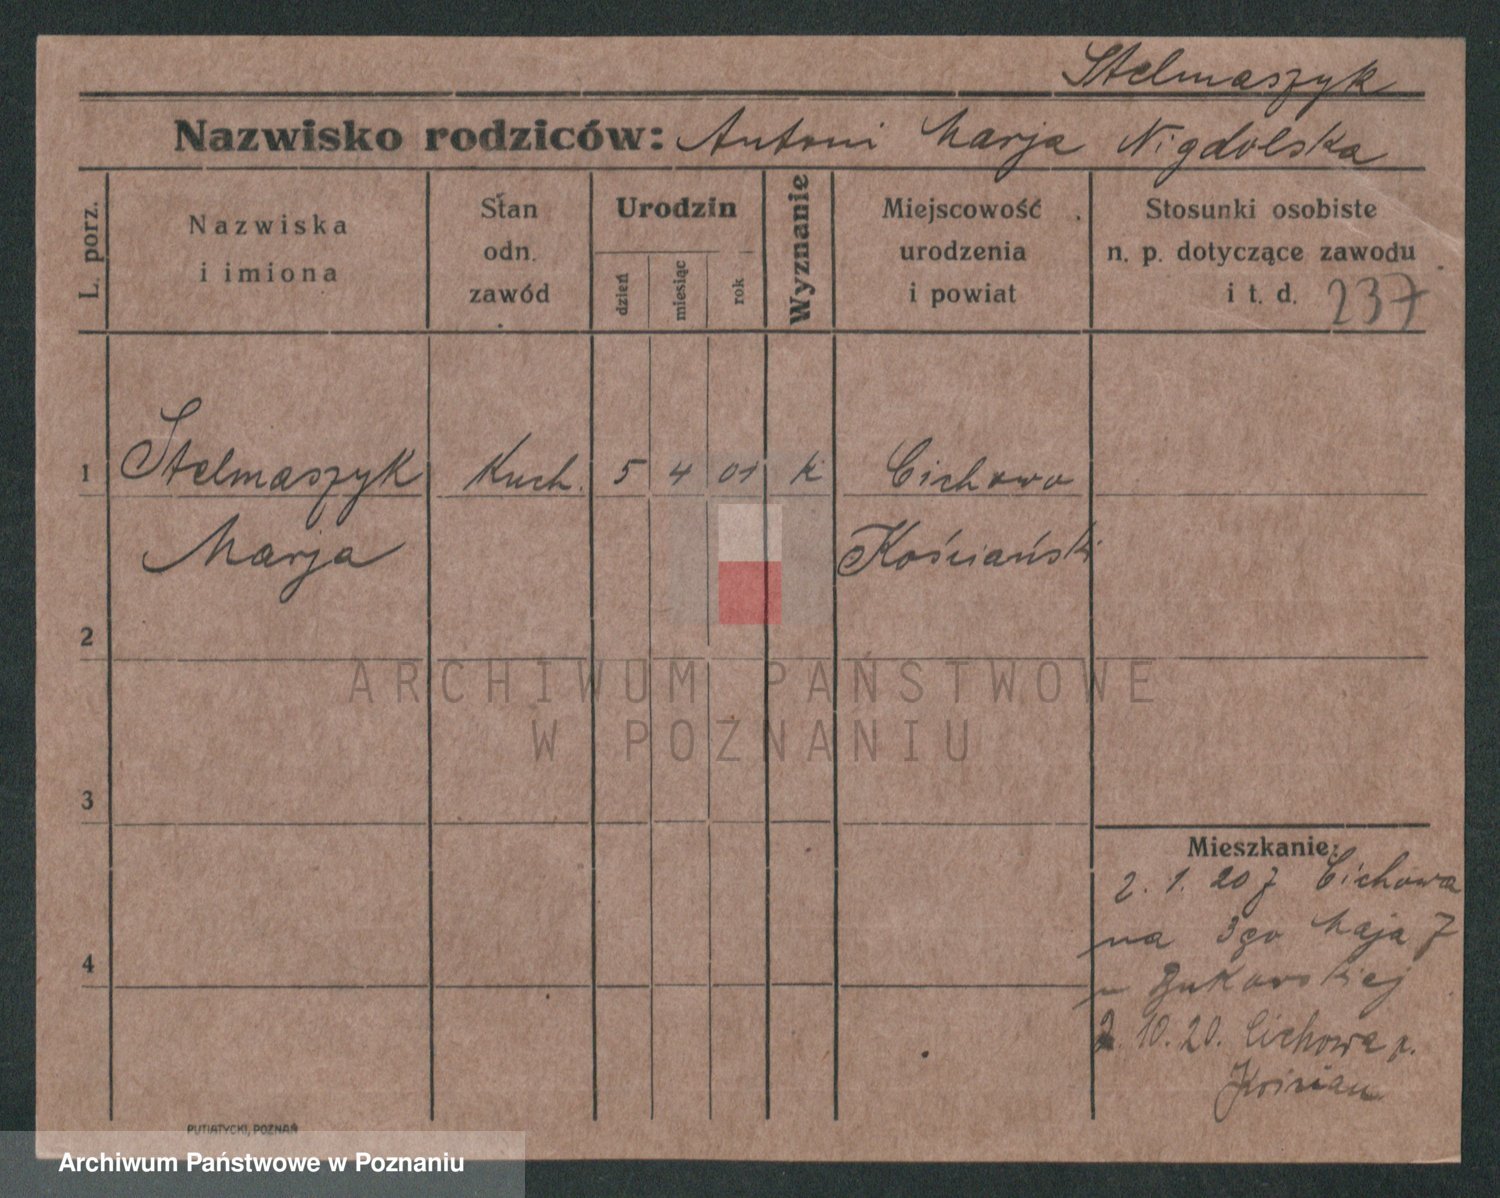 Stelmaszyk
Nazwisko rodziców: Antoni Marja Nigdolska
L. porz.
Nazwiska
i imiona
Stan
odn.
zawód
Urodzin
dzień
miesiąc
rok
Wyznanie
Miejscowość
urodzenia
i powiat
Stosunki osobiste
n. p. dotyczące zawodu
i t. d. 237
1 Stelmaszyk Kuch. 5 4 01 k Cichowo
Marja Kościański
2
ARCHIWUM PAŃSTWOWE
W POZNANIU
3
Mieszkanie:
2. 1. 20 z Cichowa
na 3go Maja 7
Bukowskiej
2. 10. 20. Cichowa p.
Kościan
4
PUTIATYCKI, POZNAŃ
Archiwum Państwowe w Poznaniu